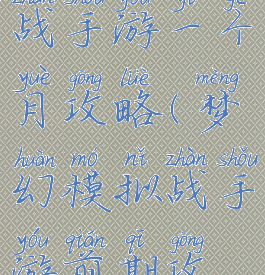 zhàn shǒu yóu yī gè
战手游一个
yuè gōng lüè mèng
月攻略(梦
huàn mó nǐ zhàn shǒu
幻模拟战手
yóu qián qī gōng
游前期攻